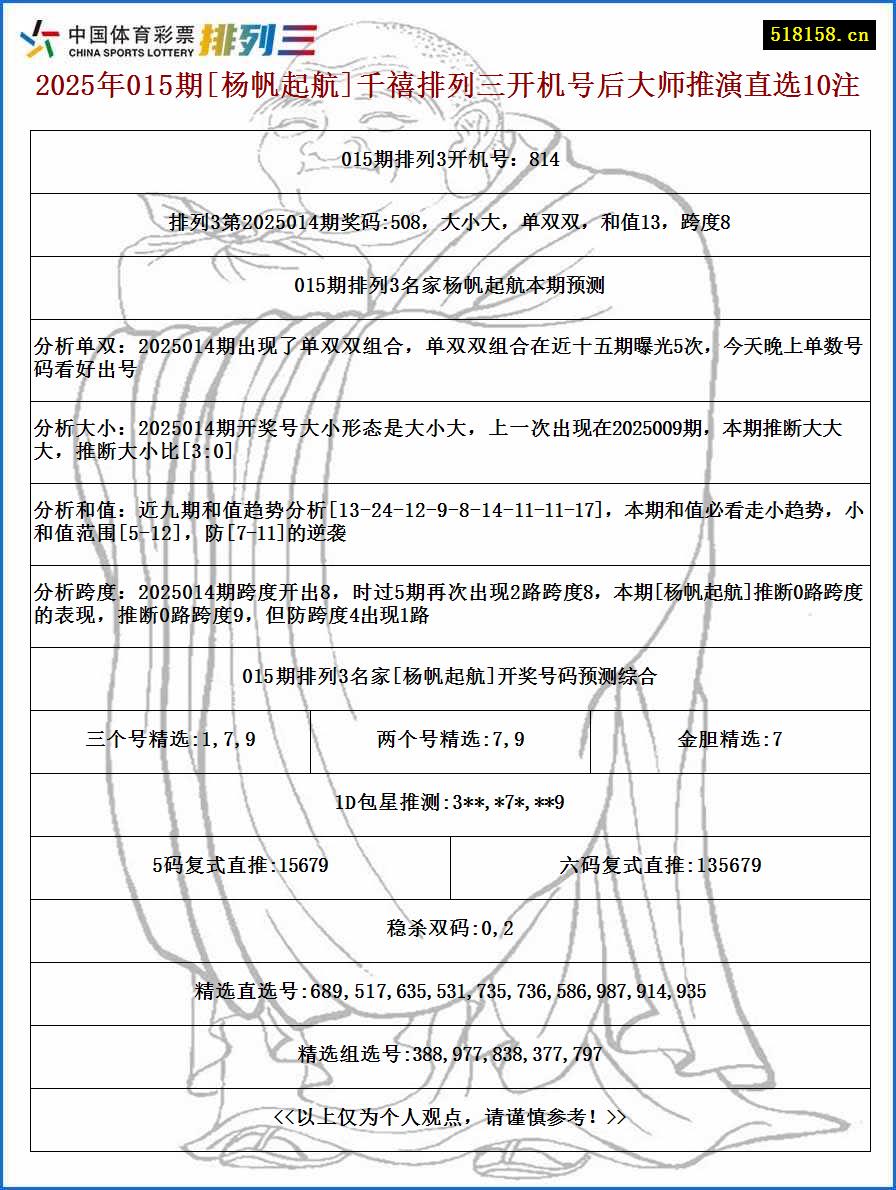 中国体育彩票
CHINA SPORTS LOTTERY
排列三
518158.cn
2025年015期[杨帆起航]千禧排列三开机号后大师推演直选10注
015期排列3开机号：814
排列3第2025014期奖码:508，大小大，单双双，和值13，跨度8
015期排列3名家杨帆起航本期预测
分析单双：2025014期出现了单双双组合，单双双组合在近十五期曝光5次，今天晚上单数号
码看好出号
分析大小：2025014期开奖号大小形态是大小大，上一次出现在2025009期，本期推断大大
大，推断大小比[3:0]
分析和值：近九期和值趋势分析[13-24-12-9-8-14-11-11-17]，本期和值必看走小趋势，小
和值范围[5-12]，防[7-11]的逆袭
分析跨度：2025014期跨度开出8，时过5期再次出现2路跨度8，本期[杨帆起航]推断0路跨度
的表现，推断0路跨度9，但防跨度4出现1路
015期排列3名家[杨帆起航]开奖号码预测综合
三个号精选:1,7,9
两个号精选:7,9
金胆精选:7
1D包星推测:3**,*7*,**9
5码复式直推:15679
六码复式直推:135679
稳杀双码:0,2
精选直选号:689,517,635,531,735,736,586,987,914,935
精选组选号:388,977,838,377,797
<<以上仅为个人观点，请谨慎参考！>>